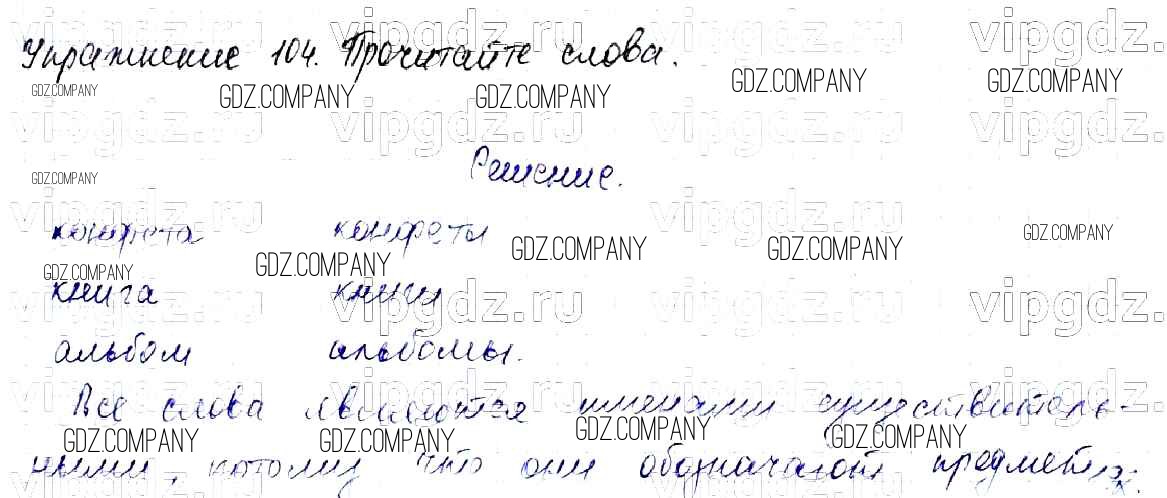 Упражнение 104. Прочитайте слова.
Решение.
конфета конфеты
книга книги
альбом альбомы.
Все слова являются именами существитель-
ными, потому что они обозначают предметы.
vipgdz.ru vipgdz.ru vipgdz.ru vipgdz.
GDZ.COMPANY GDZ.COMPANY GDZ.COMPANY GDZ.COMPANY GDZ.COMPANY
vipgdz.ru vipgdz.ru vipgdz.ru vipgdz.
GDZ.COMPANY
vipgdz.ru vipgdz.ru vipgdz.ru vipgdz.
GDZ.COMPANY GDZ.COMPANY GDZ.COMPANY GDZ.COMPANY GDZ.COMPANY
vipgdz.ru vipgdz.ru vipgdz.ru vipgdz.
vipgdz.ru vipgdz.ru vipgdz.ru vipgdz.
GDZ.COMPANY GDZ.COMPANY GDZ.COMPANY GDZ.COMPANY